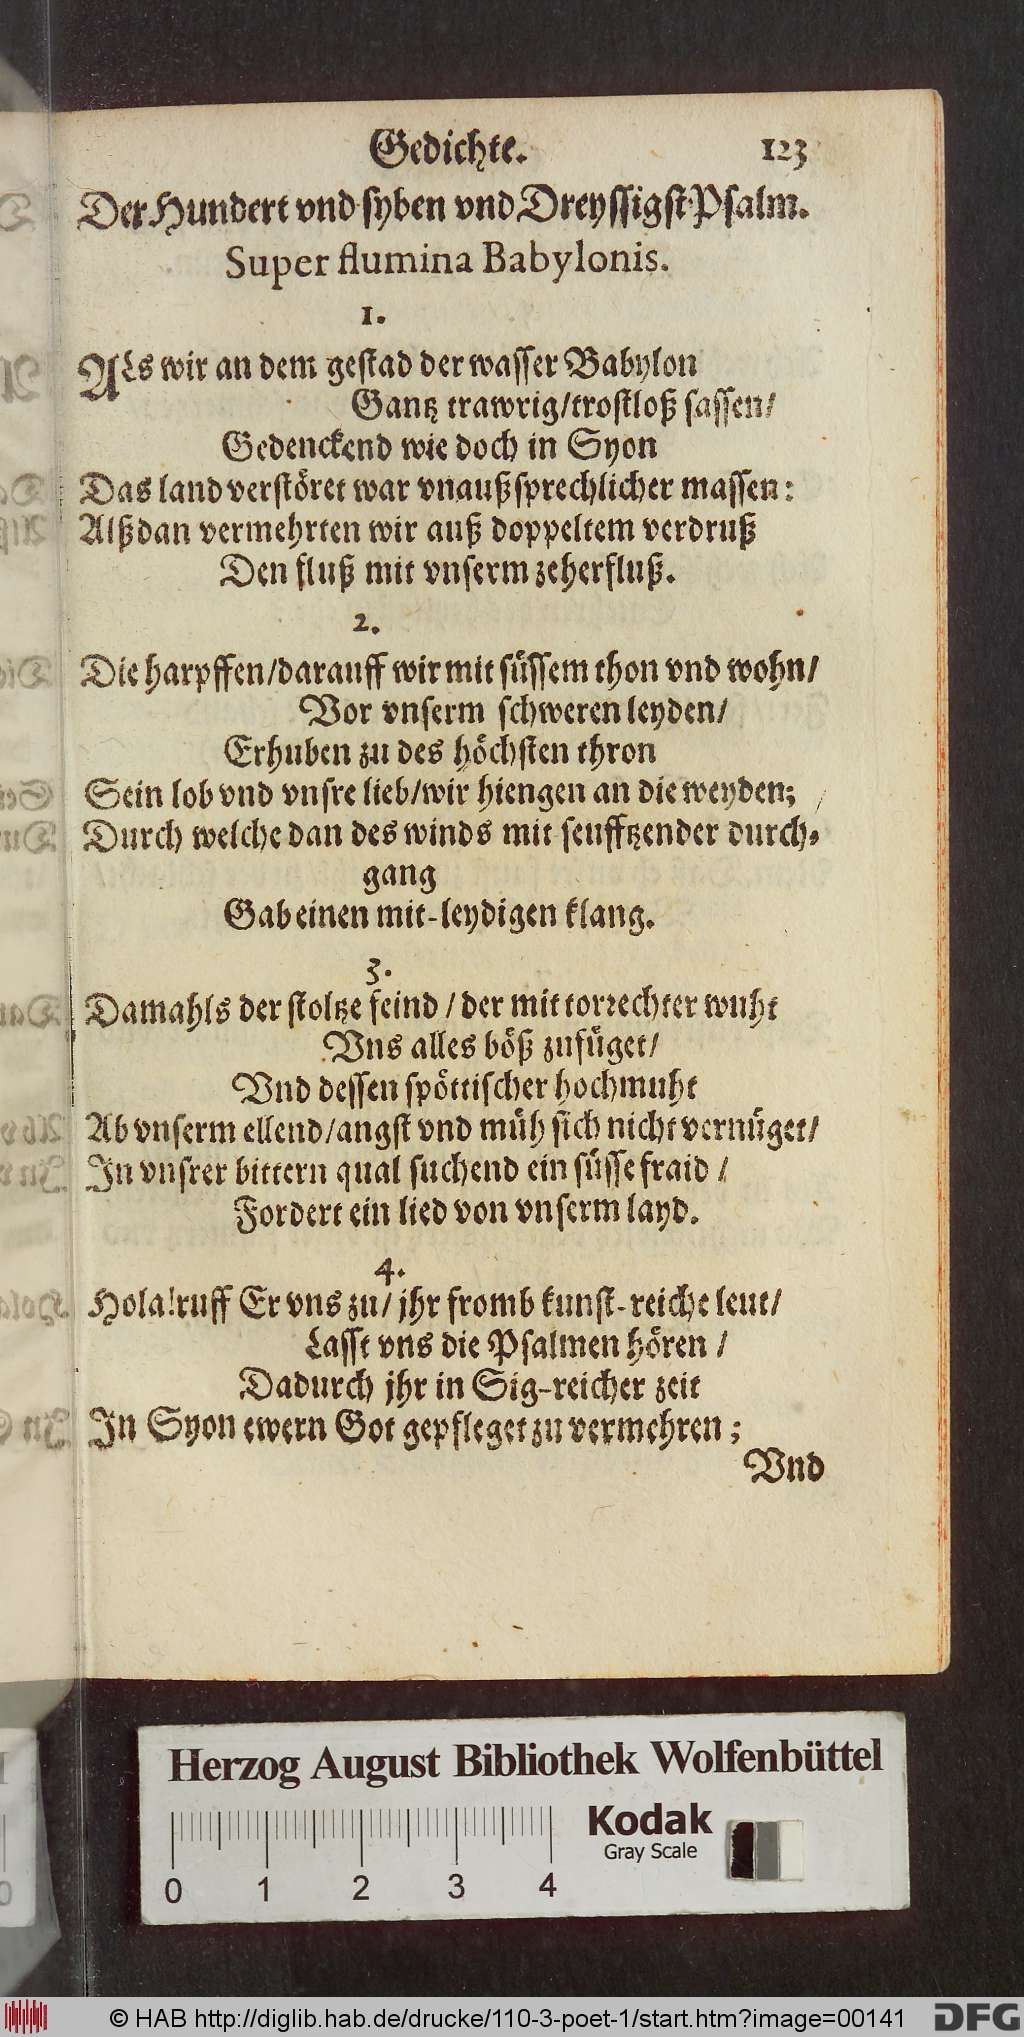 Gedichte. 123
Der Hundert vnd syben vnd Dreyssigst Psalm.
Super flumina Babylonis.
1.
ALs wir an dem gestad der wasser Babylon
Gantz trawrig/trostloß sassen/
Gedenckend wie doch in Syon
Das land verstöret war vnaußsprechlicher massen:
Alßdan vermehrten wir auß doppeltem verdruß
Den fluß mit vnserm zeherfluß.
2.
Die harpffen/darauff wir mit süssem thon vnd wohn/
Vor vnserm schweren leyden/
Erhuben zu des höchsten thron
Sein lob vnd vnsre lieb/wir hiengen an die weyden;
Durch welche dan des winds mit seufftzender durch-
gang
Gab einen mit-leydigen klang.
3.
Damahls der stoltze feind / der mit torrechter wuht
Vns alles böß zufüget/
Vnd dessen spöttischer hochmuht
Ab vnserm ellend/angst vnd müh sich nicht vernüget/
In vnsrer bittern qual suchend ein süsse fraid /
Fordert ein lied von vnserm layd.
4.
Hola!ruff Er vns zu/ jhr fromb kunst-reiche leut/
Lasst vns die Psalmen hören /
Dadurch jhr in Sig-reicher zeit
In Syon ewern Got gepfleget zu vermehren ;
Vnd
Herzog August Bibliothek Wolfenbüttel
Kodak
Gray Scale
0 1 2 3 4
© HAB http://diglib.hab.de/drucke/110-3-poet-1/start.htm?image=00141
DFG